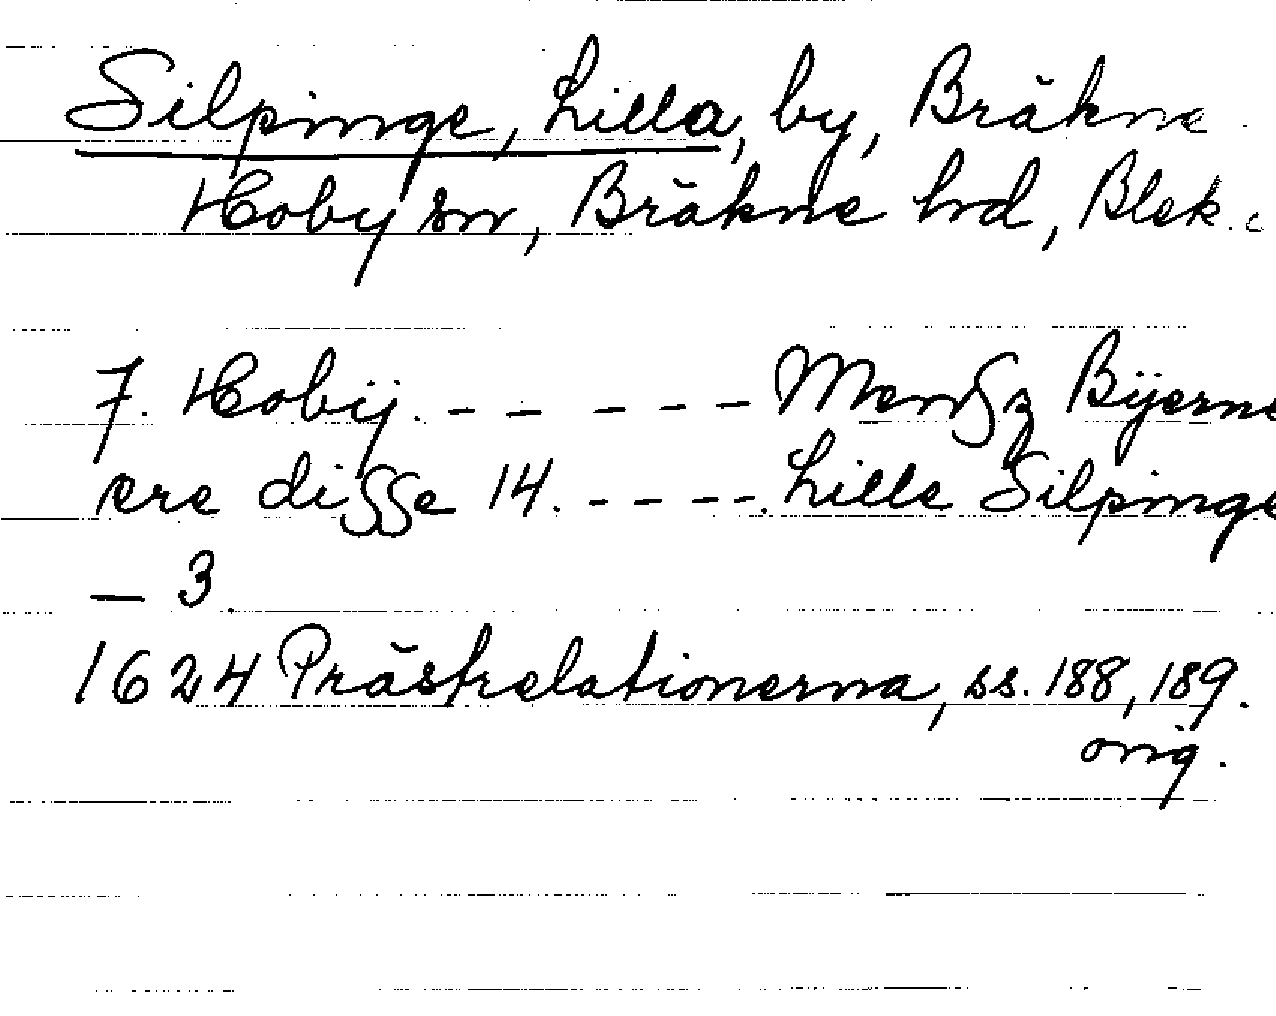 Silpinge, Lilla, by, Bräkne
Hoby sn, Bräkne hd, Blek.
7. Hobÿ. - - - - - Bÿerne
ere disse 14. - - - -. Lille Silpinge
— 3.
1624 Prästrelationerna, ss. 188, 189.
orig.